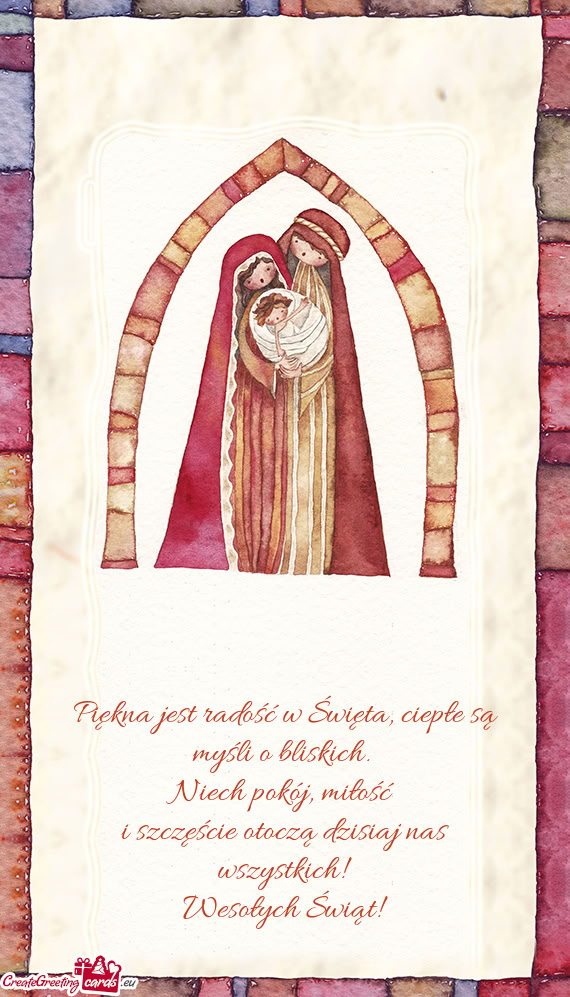 Piękna jest radość w Święta, ciepłe są
myśli o bliskich.
Niech pokój, miłość
i szczęście otoczą dzisiaj nas
wszystkich!
Wesołych Świąt!
CreateGreeting cards .eu